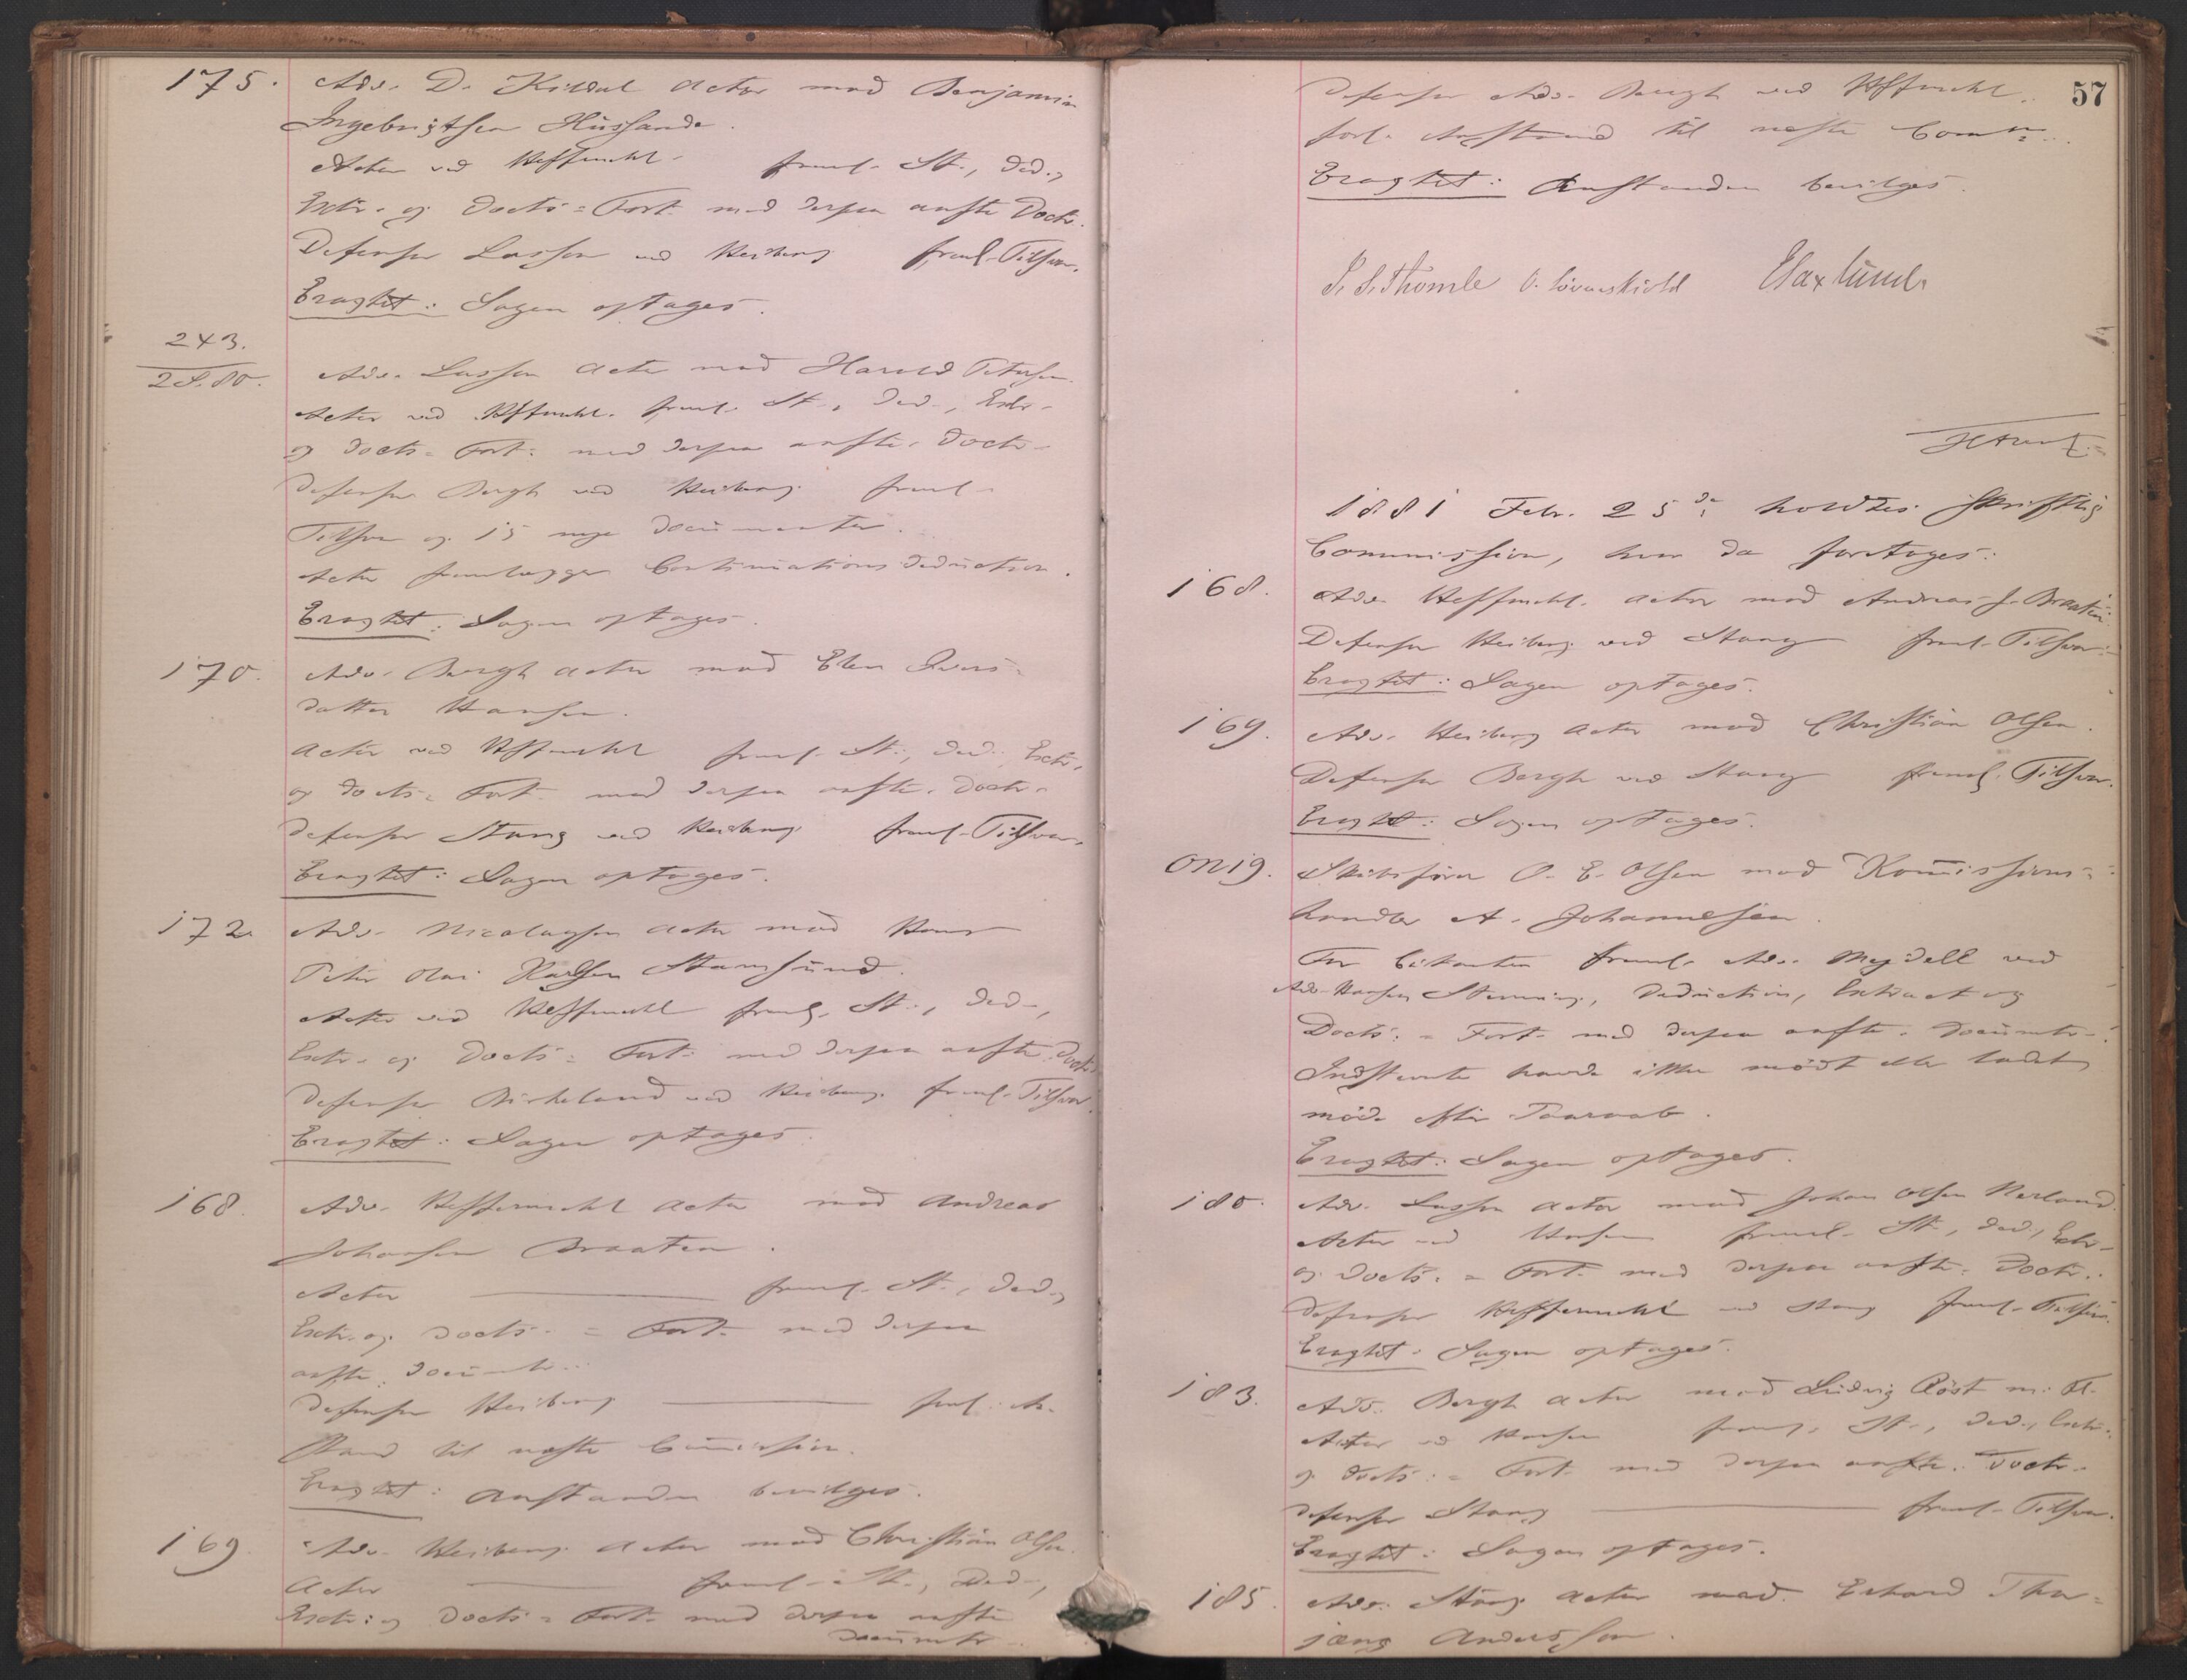 175. Adv. D. Kildal Actor mod Benjamin
Ingebrigtsen Hussande.
Actor ved Heffermehl freml. St., Ded.,
Extr. og Docts = Fort. med derpaa anfte Doctr.
Defensor Lasson ved Heiberg freml. Tilsvar.
Eragtet: Sagen optages.
243.
2 S. 80.
Adv. Lasson Actor mod Harald Petersen.
Actor ved Hffmehl. freml. St., Ded., Extr.
og Docts = Fort. med derpaa anfte. Doctr.
Defensor Bergh ved Heiberg freml.
Tilsvar og 15 nye Documenter.
Actor fremlægger Continuations Deduction.
Eragtet: Sagen optages.
170. Adv. Bergh Actor mod Elen Ivers=
datter Hansen.
Actor ved Hffmehl freml. St., Ded., Extr.
og Docts = Fort. med derpaa anfte. Doctr.
Defensor Stang ved Heiberg freml. Tilsvar.
Eragtet: Sagen optages.
172. Adv. Nicolaysen Actor mod Hans
Peter Olai Karlsen Stamsund.
Actor ved Heffermehl freml. St., Ded.,
Extr. og Docts = Fort. med derpaa anfte Doctr.
Defensor Birkeland ved Heiberg freml. Tilsvar.
Eragtet: Sagen optages.
168. Adv. Heffermehl Actor mod Andreas
Johansen Braaten.
Actor freml. St., Ded.,
Extr. og Docts. = Fort. med derpaa
anfte. Documtr.
Defensor Heiberg forl. An-
stand til næste Commission.
Eragtet: Anstanden bevilges.
169. Adv. Heiberg Actor mod Christian Olsen.
Actor freml. St., Ded.,
Extr. og Docts = Fort. med derpaa anfte
Documtr.
57
Defensor Adv. Bergh ved Hffmehl.
forl. Anstand til næste Comm.
Eragtet: Anstanden bevilges.
I. S. Thomle O. Løvenskiold Elaxlund.
1881 Febr. 25de holdtes skriftlig
Commission, hvor da foretages:
168. Adv. Heffmehl. Actor mod Andreas J. Braaten
Defensor Heiberg ved Stang freml. Tilsvar.
Eragtet: Sagen optages.
169. Adv. Heiberg Actor mod Christian Olsen.
Defensor Bergh ved Stang freml. Tilsvar.
Eragtet: Sagen optages.
Skibsfører O. E. Olsen mod Kommissions=
handler A. Johannesen.
For Citanten freml. Adv. Mejdell ved
Adv. Hansen Stevning, Deduction, Extract og
Docts. = Fort. med derpaa anfte. Documtr.
Indstevnte havde ikke mødt eller ladet
møde efter Paaraab.
Eragtet: Sagen optages.
180. Adv. Lasson Actor mod Johan Olsen Nerland.
Actor ved Hansen freml. St., Ded., Extr.
og Docts. = Fort. med derpaa anfte. Doctr.
Defensor Heffermehl ved Stang freml. Tilsvar.
Eragtet: Sagen optages.
183. Adv. Bergh Actor mod Ludvig Röst m. Fl.
Actor ved Hansen freml. St., Ded., Extr.
og Docts. = Fort. med derpaa anfte. Doctr.
Defensor Stang freml. Tilsvar.
Eragtet: Sagen optages.
185. Adv. Stang Actor mod Erhard Thor=
jæng Anderssen.